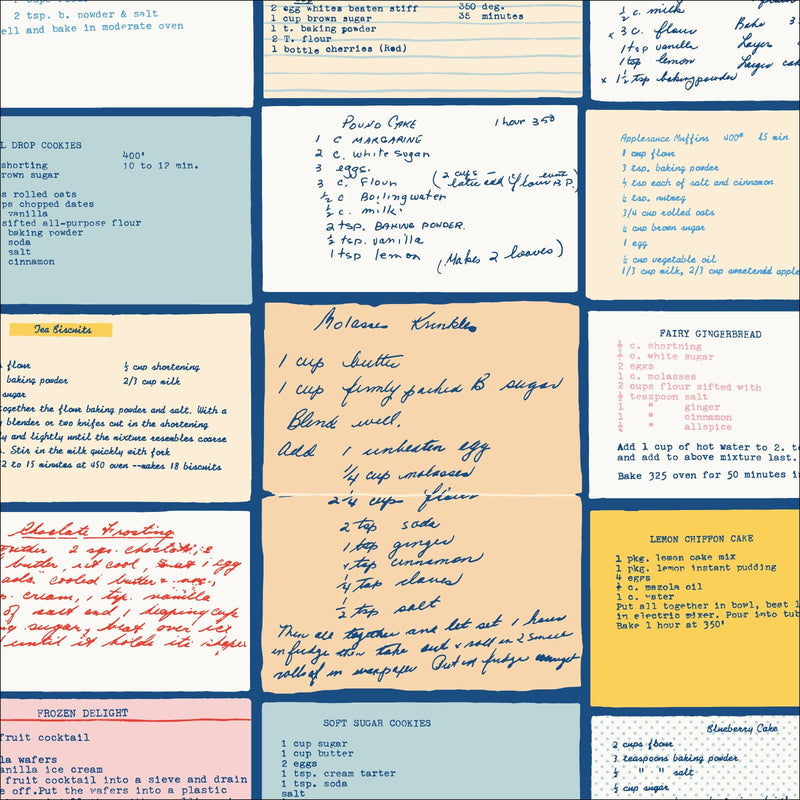 2 tsp. b. powder & salt
ell and bake in moderate oven
2 egg whites beaten stiff 350 deg.
1 cup brown sugar 35 minutes
1 t. baking powder
2 T. flour
1 bottle cherries (Red)
½ c. milk
x 3 c. flour Bake 3
1 tsp vanilla Layer
1 tsp lemon Larger cak
x 1½ tsp baking powder
L DROP COOKIES
400'
shorting 10 to 12 min.
rown sugar
s rolled oats
ps chopped dates
vanilla
sifted all-purpose flour
baking powder
soda
salt
cinnamon
POUND CAKE 1 hour 350
1 C MARGARINE
2 c. white sugar
3 eggs.
3 c. Flour (2 cups
late add if flour B.P.)
½ c Boiling water
½ c. milk.
2 tsp. BAKING POWDER.
½ tsp. vanilla
1 tsp lemon (Makes 2 loaves)
Applesauce Muffins 400° 25 min
1 cup flour
3 tsp. baking powder
½ tsp each of salt and cinnamon
½ tsp. nutmeg
3/4 cup rolled oats
½ cup brown sugar
1 egg
½ cup vegetable oil
1/3 cup milk, 2/3 cup sweetened apple
Tea Biscuits
flour ½ cup shortening
baking powder 2/3 cup milk
sugar
together the flour baking powder and salt. With a
blender or two knifes cut in the shortening
y and lightly until the mixture resembles coarse
. Stir in the milk quickly with fork
2 to 15 minutes at 450 oven --makes 18 biscuits
Molasses Krinkles
1 cup butter
1 cup firmly packed B sugar
Blend well.
Add 1 unbeaten egg
¼ cup molasses
2¼ cups flour
2 tsp soda
1 tsp ginger
1 tsp cinnamon
¼ tsp cloves
½ tsp salt
Then all together and let set 1 hour
in fudge then take out & roll in 2 small
rolls of in wax paper Put in fudge
FAIRY GINGERBREAD
½ c. shortning
½ c. white sugar
2 eggs
1 c. molasses
2 cups flour sifted with
½ teaspoon salt
1 " ginger
1 " cinnamon
½ " allspice
Add 1 cup of hot water to 2. t
and add to above mixture last.
Bake 325 oven for 50 minutes i
Choclate Frosting
2 sqs. choclate, 2
butter, let cool, beat 1 egg
ads. cooled butter &
. cream, 1 tsp. vanilla
of salt and 1 heaping cup
g sugar, beat over ice
until it holds its shape
LEMON CHIFFON CAKE
1 pkg. lemon cake mix
1 pkg. lemon instant pudding
4 eggs
c. mazola oil
1 c. water
Put all together in bowl, beat 1
in electric mixer. Pour into tub
Bake 1 hour at 350'
FROZEN DELIGHT
fruit cocktail
la wafers
anilla ice cream
fruit cocktail into a sieve and drain
e off. Put the wafers into a plastic
SOFT SUGAR COOKIES
1 cup sugar
1 cup butter
2 eggs
1 tsp. cream tarter
1 tsp. soda
salt
Blueberry Cake
2 cups flour
3 teaspoons baking powder
½ " " salt
½ cup sugar